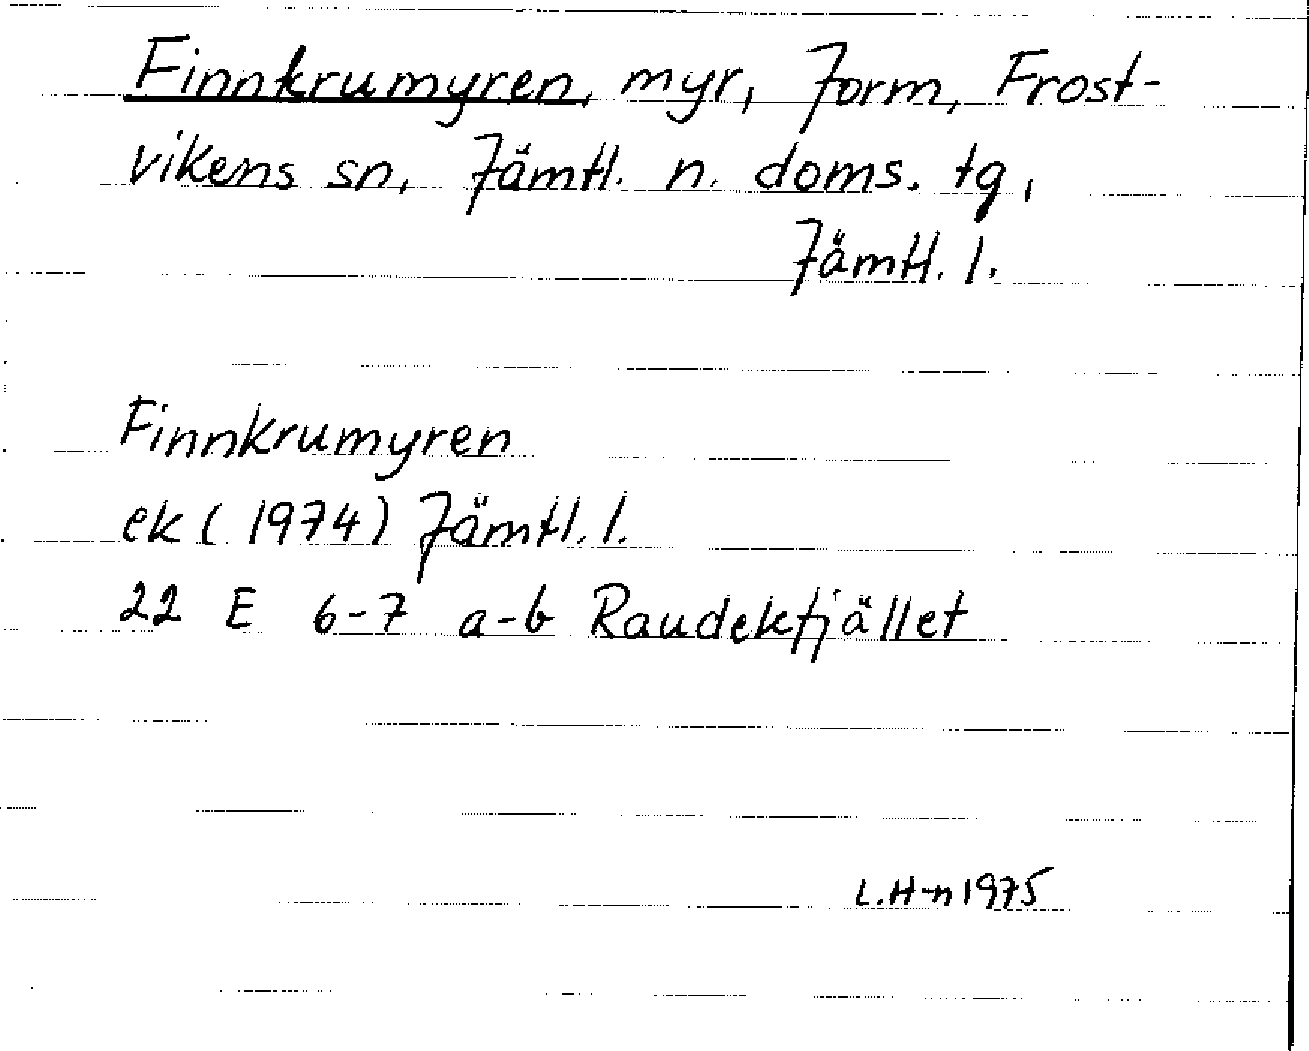 Finnkrumyren, myr, Jorm, Frost-
vikens sn, Jämtl. n. doms. tg,
Jämtl. l.
Finnkrumyren
ek (1974) Jämtl. l.
22 E 6-7 a-b Raudekfjället
L.H-n 1975